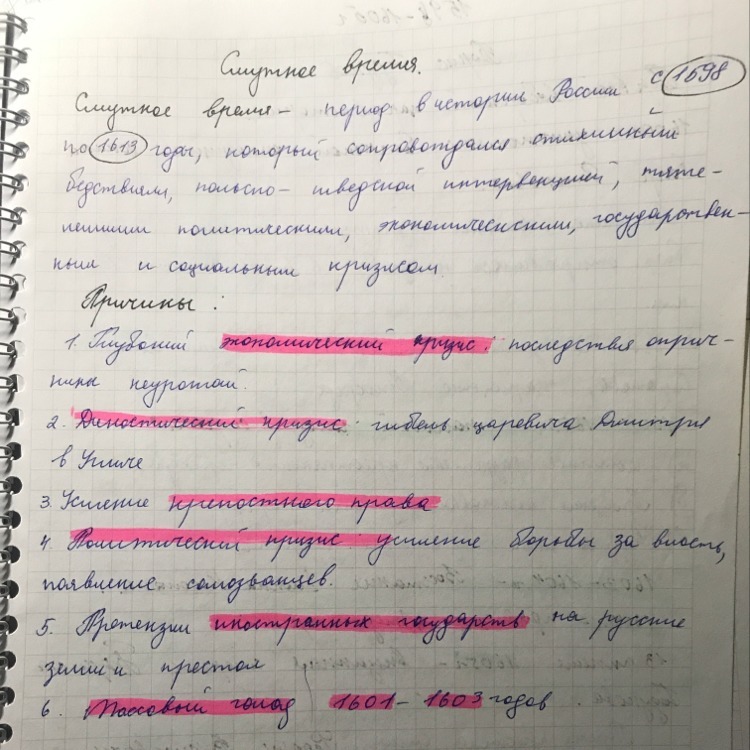 Смутное время.
Смутное время – период в истории России с 1598
по 1613 годы, который сопровождался стихийный
бедствиям, польско-шведской интервенцией, тяже-
лейшим политическим, экономическим, государствен-
ным и социальным кризисом.
Причины:
1. Глубокий экономический кризис: последствия оприч-
нины неурожай.
2. Династический кризис: гибель царевича Дмитрия
в Угличе
3. Усиление крепостного права
4. Политический кризис: усиление борьбы за власть,
появление самозванцев.
5. Претензии иностранных государств на русские
земли и престол
6. Массовый голод 1601–1603 годов